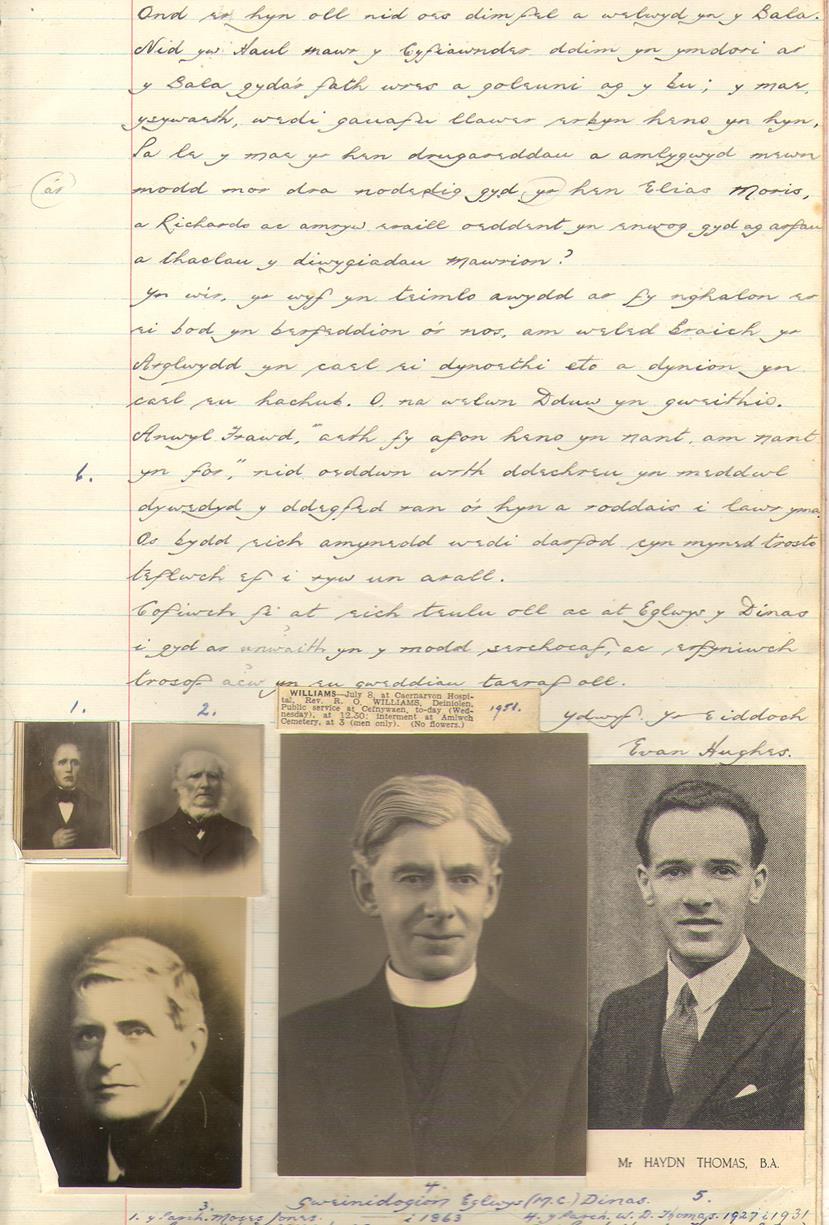 Ond er hyn oll nid oes dim fel a welwyd yn y Bala.
Nid yw Haul mawr y Cyfiawnder ddim yn ymdori ar
y Bala gyda'r fath wres a goleuni ag y bu; y mae,
ysywaeth, wedi gauafu llawer erbyn heno yn hyn.
Pa le y mae yr hen drugareddau a amlygwyd mewn
modd mor dra nodedig gyd yr hen Elias Moris,
a'r
a Richards ac amryw eraill oeddent yn enwog gyd ag arfau
a thaclau y diwygiadau mawrion?
Yn wir, yr wyf yn teimlo awydd ar fy nghalon er
ei bod yn berfeddion o'r nos, am weled Braich yr
Arglwydd yn cael ei dynoethi eto a dynion yn
cael eu hachub. O, na welwn Dduw yn gweithio.
Anwyl Frawd, "aeth fy afon heno yn nant, am nant
6. yn for," nid oeddwn wrth ddechreu yn meddwl
dywedyd y ddegfed ran o'r hyn a roddais i lawr yma.
Os bydd eich amynedd wedi darfod cyn myned trosto
teflwch ef i ryw un arall.
Cofiwch fi at eich teulu oll ac at Eglwys y Dinas
i gyd ar unwaith yn y modd serchocaf, ac erfyniwch
trosof acw yn eu gweddiau taeraf oll.
ydwyf. Yr eiddoch
Evan Hughes.
1.
2.
WILLIAMS—July 8, at Caernarvon Hospi-
tal, Rev. R. O. WILLIAMS, Deiniolen.
Public service at Cefnywaen, to-day (Wed-
nesday), at 12.30; interment at Amlwch
Cemetery, at 3 (men only). (No flowers.)
1951.
Mr HAYDN THOMAS, B.A.
3.
4.
5.
Gweinidogion Eglwys (M.C.) Dinas.
1. y Parch. Moses Jones. i 1863 4. y Parch. W. D. Thomas. 1927 i 1931